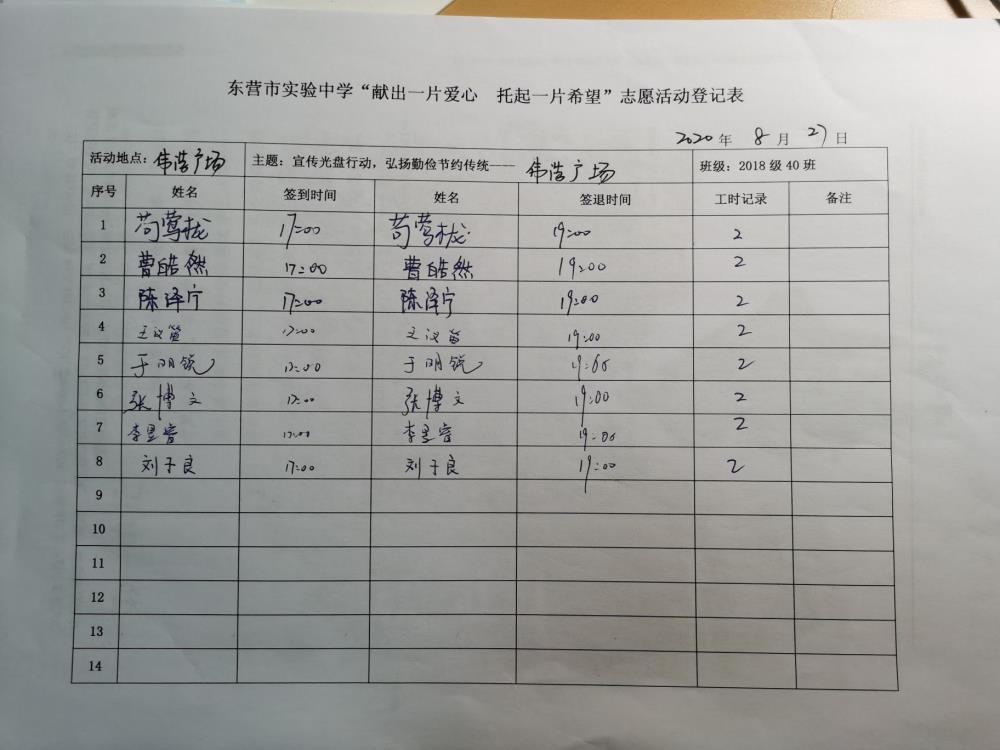 东营市实验中学“献出一片爱心 托起一片希望”志愿活动登记表
2020 年 8 月 27 日
活动地点：伟浩广场 主题：宣传光盘行动，弘扬勤俭节约传统—— 伟浩广场 班级：2018 级 40 班
序号 姓名 签到时间 姓名 签退时间 工时记录 备注
1 苟莺栊 17:00 苟莺栊 19:00 2
2 曹皓然 17:00 曹皓然 19:00 2
3 陈泽宁 17:00 陈泽宁 19:00 2
4 17:00 19:00 2
5 于明锐 17:00 于明锐 19:00 2
6 张博文 17:00 张博文 19:00 2
7 李昱睿 17:00 李昱睿 19:00 2
8 刘子良 17:00 刘子良 19:00 2
9
10
11
12
13
14